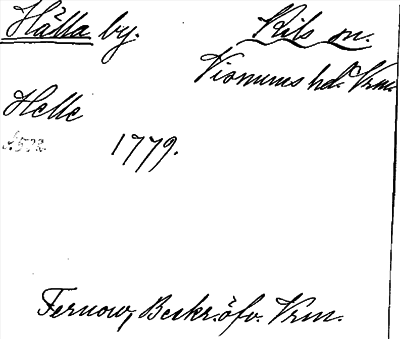 Hälla by. Kils sn.
Visnums hd. Vrm.
Helle
1779.
Fernow, Beskr. öfv. Vrm.